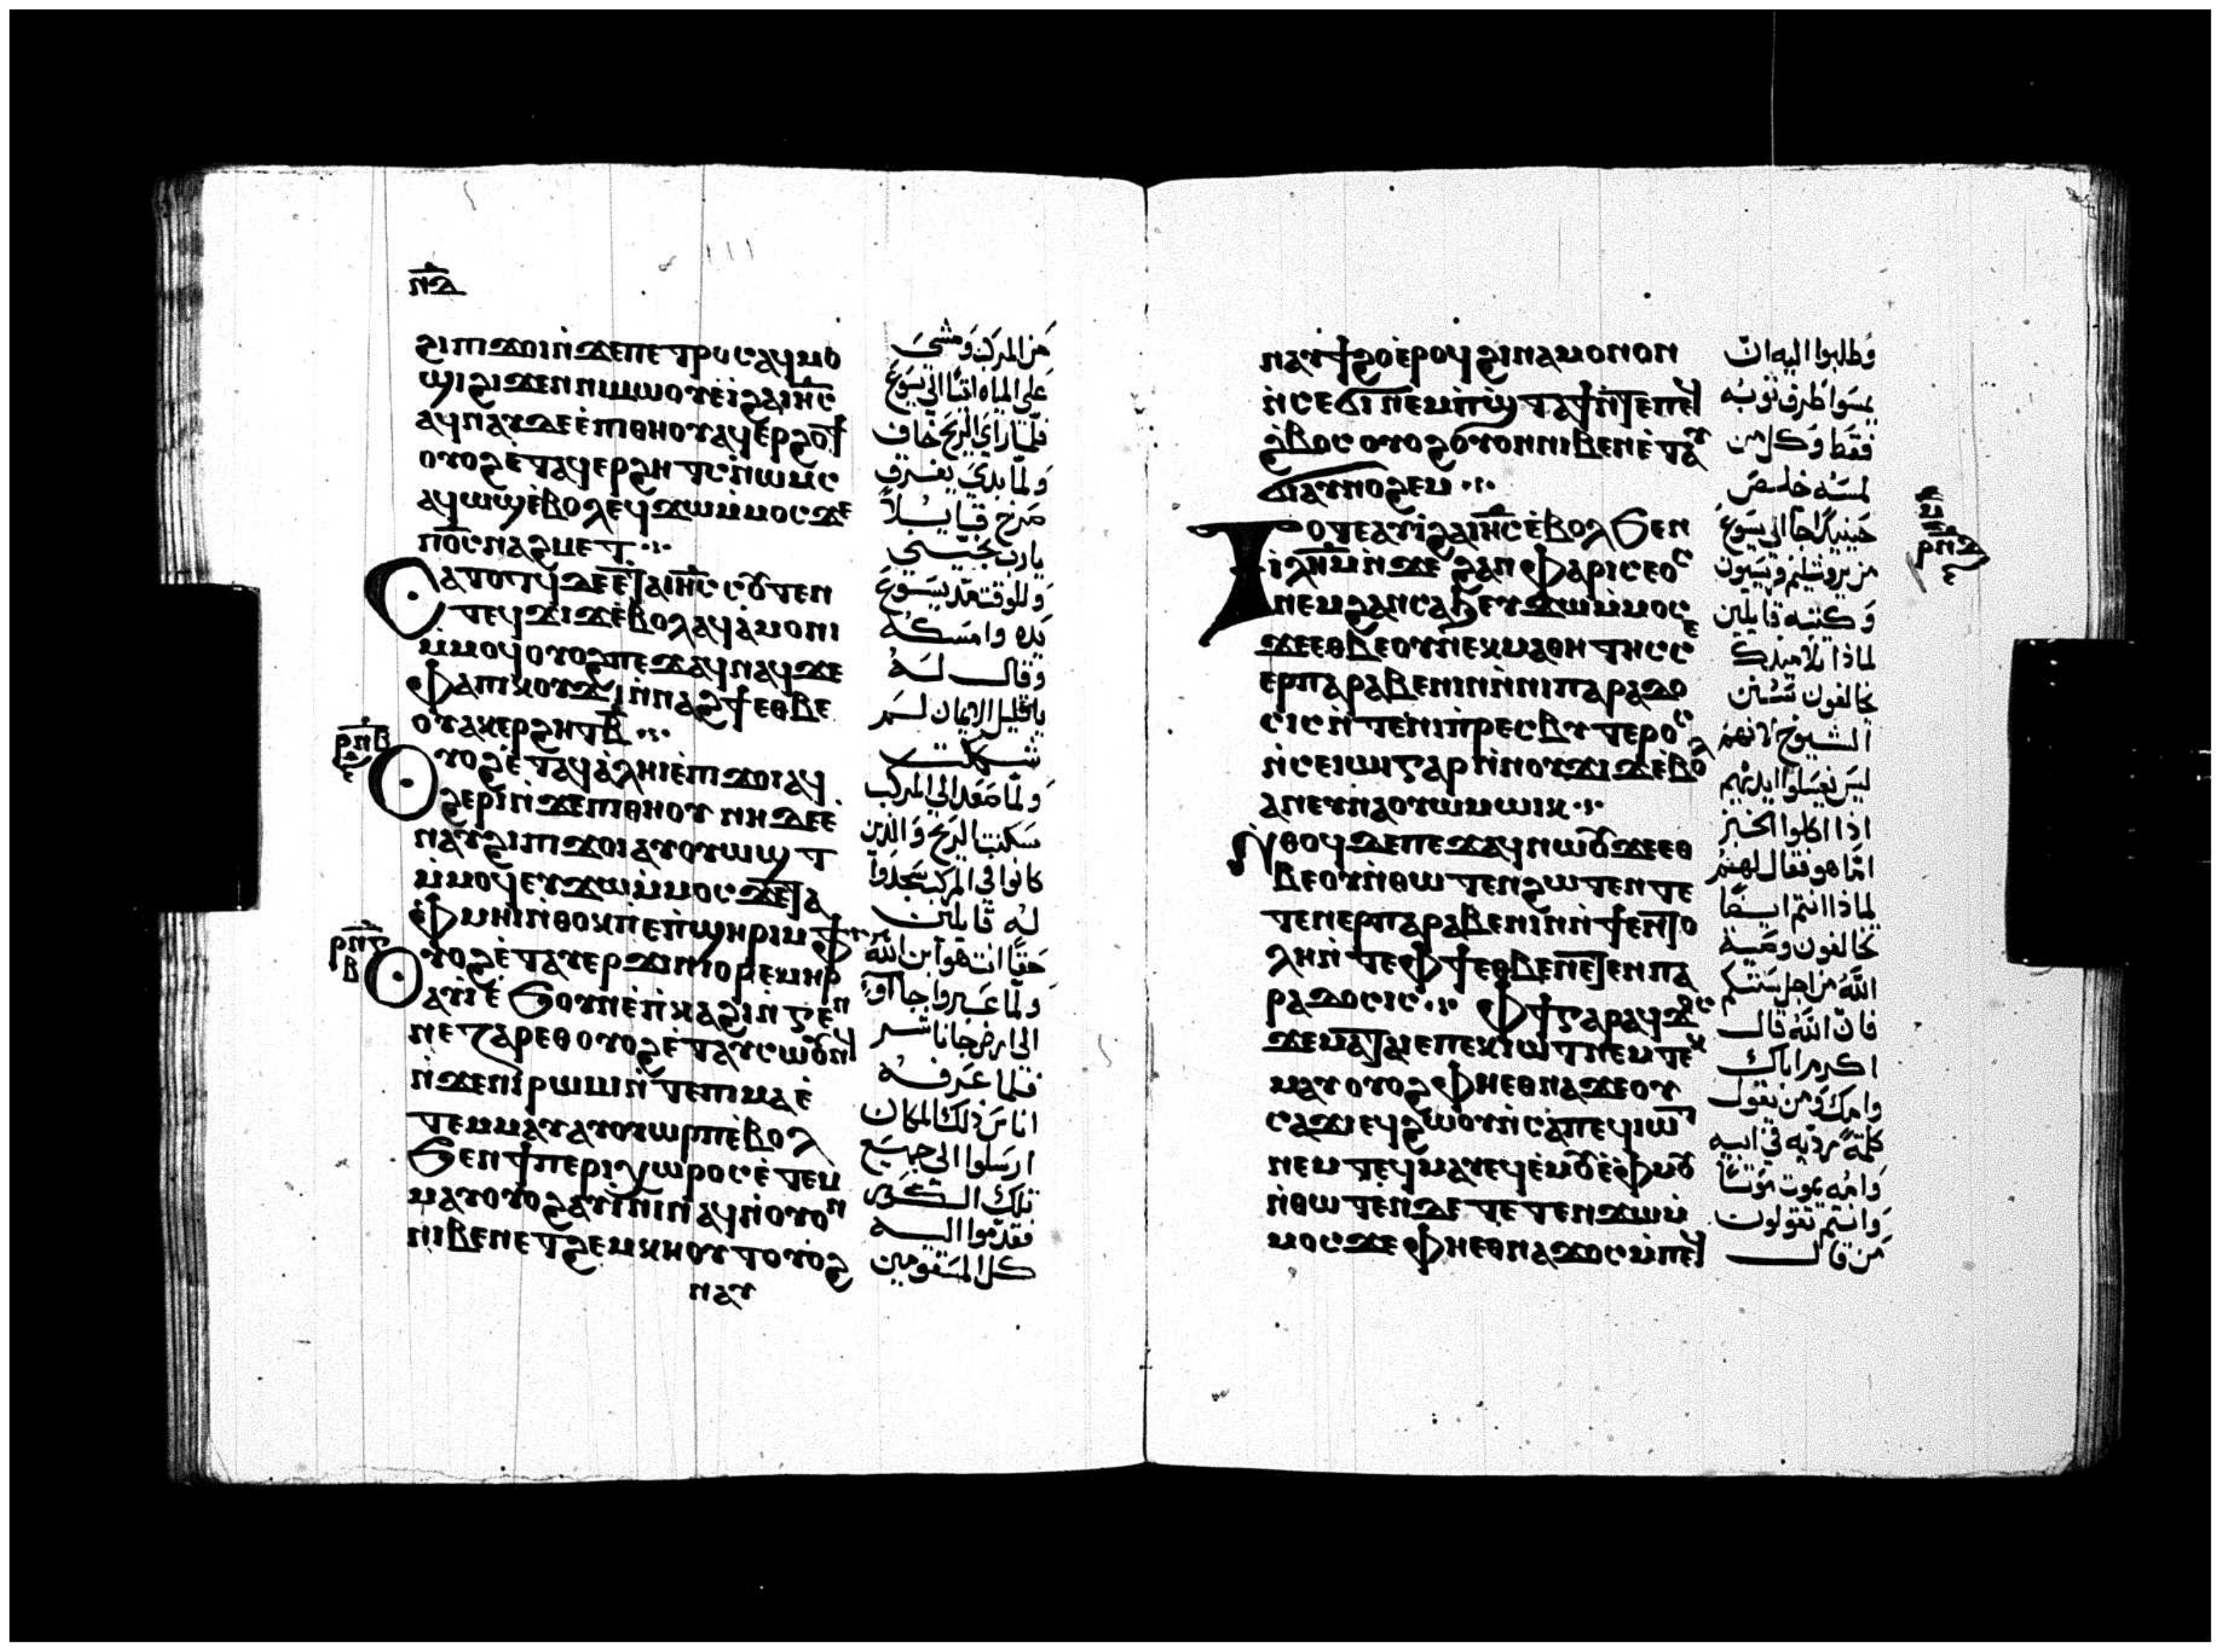 ⲛ̅ⲇ̅
ϩⲓⲡⲓϫⲟⲓⲛ̀ϫⲉⲡⲉⲧⲣⲟⲥⲁϥⲙⲟ
ϣⲓϩⲓϫⲉⲛⲛⲓⲙⲱⲟⲩⲉ̀ⲓ̀ϩⲁⲓⲏ̅ⲥ̅
ⲁϥⲛⲁⲩⲇⲉⲉ̀ⲡⲓⲑⲏⲟⲩⲁϥⲉⲣϩⲟϯ
ⲟⲩⲟϩⲉ̀ⲧⲁϥⲉⲣϩⲏⲧⲥⲛ̀ⲱⲙⲥ
ⲁϥⲱϣⲉ̀ⲃⲟⲗⲉϥϫⲱⲙ̀ⲙⲟⲥϫⲉ
ⲡⲟ̅ⲥ̅ⲛⲁϩⲙⲉⲧ
ⲥⲁⲧⲟⲧϥⲇⲉⲉ̀ⲧⲁⲓⲏ̅ⲥ̅ⲥⲟⲩⲧⲉⲛ
ⲧⲉϥϫⲓϫⲉ̀ⲃⲟⲗⲁϥⲁ̀ⲙⲟⲛⲓ
ⲙ̀ⲙⲟϥⲟⲩⲟϩⲡⲉϫⲁϥⲛⲁϥϫⲉ
ⲫⲁⲡⲓⲕⲟⲩϫⲓⲛ̀ⲛⲁϩϯⲉⲑⲃⲉ
ⲟⲩⲁⲕⲉⲣϩⲏⲧⲃ̅
ⲣ̅ⲡ̅ⲃ̅
ⲟⲩⲟϩⲉ̀ⲧⲁϥⲁ̀ⲗⲏⲓⲉ̀ⲡⲓϫⲟⲓⲁϥ
ϩⲉⲣⲓⲛ̀ϫⲉⲡⲓⲑⲏⲟⲩ ⲛⲏⲇⲉⲉ̀
ⲛⲁⲩϩⲓⲡⲓϫⲟⲓⲁⲩⲟⲩⲱϣⲧ
ⲙ̀ⲙⲟϥⲉⲩϫⲱⲙ̀ⲙⲟⲥϫⲉⲧⲁ
ⲫⲙⲏⲓⲛ̀ⲑⲟⲕⲡⲉⲡ̀ϣⲏⲣⲓⲙⲫϯ
ⲟⲩⲟϩⲉ̀ⲧⲁⲩⲉⲣϫⲓⲛⲓⲟⲣⲉⲙⲏⲣ
ⲁⲩⲓ̀ⲉ̀ϧⲟⲩⲛⲉ̀ⲡ̀ⲕⲁϩⲓⲛ̀ⲅⲉⲛ
ⲛⲉⲍⲁⲣⲉⲑⲟⲩⲟϩⲉ̀ⲧⲁⲩⲥⲱⲟⲩⲛ
ⲛ̀ϫⲉⲛⲓⲣⲱⲙⲓⲛ̀ⲧⲉⲡⲓⲙⲁⲉ̀
ⲧⲉⲙⲙⲁⲩⲁⲩⲟⲩⲱⲣⲡⲉ̀ⲃⲟⲗ
ϧⲉⲛϯⲡⲉⲣⲓⲭⲱⲣⲟⲥⲉ̀ⲧⲉⲙ
ⲙⲁⲩⲟⲩⲟϩⲁⲩⲓ̀ⲛⲓⲛⲁϥⲛ̀ⲟⲩⲟⲛ
ⲛⲓⲃⲉⲛⲉⲧϩⲉⲙⲕⲏⲟⲩⲧⲟⲩⲟϩ
ⲛⲁⲩ
من المركب ومشى
على المياه اتيا الى يسوع
فلما راى الريح خاف
ولما بدى يغرق
صرخ قايلا
يارب نجيني
وللوقت مد يسوع
يده وامسكه
وقال له
يا قليل الايمان لم
شككت
ولما صعد الى المركب
سكنت الريح والذين
كانوا في المركب سجدوا
له قايلين
حقا انت هو ابن الله
ولما عبروا جاآوا
الى ارض جاناشر
فلما عرفه
اناس ذلك المكان
ارسلوا الى جميع
تلك الكور
فقدموا اليه
كل المسقومين
ⲛⲁⲩϯϩⲟⲉ̀ⲣⲟϥϩⲓⲛⲁⲙⲟⲛⲟⲛ
ⲛ̀ⲥⲉϭⲓⲛⲉⲙⲡ̀ϣⲧⲁϯⲛ̀ⲧⲉⲡⲉϥ
ϩ̀ⲃⲟⲥⲟⲩⲟϩⲟⲩⲟⲛⲛⲓⲃⲉⲛⲉ̀ⲧⲁⲩ
ϭⲓⲁⲩⲛⲟϩⲉⲙ
ⲧⲟⲧⲉⲁⲩⲓ̀ϩⲁⲓⲏ̅ⲥ̅ⲉ̀ⲃⲟⲗϧⲉⲛ
ⲓⲗⲏ̅ⲙ̅ⲛ̀ϫⲉ ϩⲁⲛⲫⲁⲣⲓⲥⲉⲟⲥ
ⲛⲉⲙϩⲁⲛⲥⲁϧⲉⲩϫⲱⲙ̀ⲙⲟⲥ
ϫⲉⲉⲑⲃⲉⲟⲩⲛⲉⲕⲙⲁⲑⲏⲧⲏⲥⲥⲉ
ⲉⲣⲡⲁⲣⲁⲃⲉⲛⲓⲛⲛ̀ⲛⲓⲡⲁⲣⲁⲇⲟ
ⲥⲓⲥⲛ̀ⲧⲉⲛⲓⲡ̀ⲣⲉⲥⲃⲩⲧⲉⲣⲟⲥ
ⲛ̀ⲥⲉⲓⲱⲓⲅⲁⲣⲛ̀ⲛⲟⲩϫⲓϫⲉ̀ⲃⲟⲗ
ⲁⲛⲉⲩⲛⲁⲟⲩⲱⲙⲱⲓⲕ
ⲛ̀ⲑⲟϥⲇⲉⲡⲉϫⲁϥⲛⲱⲟⲩϫⲉⲉⲑ
ⲃⲉⲟⲩⲛ̀ⲑⲱⲧⲉⲛϩⲱⲧⲉⲛⲧⲉ
ⲧⲉⲛⲉⲣⲡⲁⲣⲁⲃⲉⲛⲓⲛⲛ̀ϯⲉⲛⲧⲟ
ⲗⲏⲛ̀ⲧⲉⲫϯⲉⲑⲃⲉⲛⲉⲧⲉⲛⲡⲁ
ⲣⲁⲇⲟⲥⲓⲥ ⲫϯⲅⲁⲣⲁϥϫⲟⲥ
ϫⲉⲙⲁⲧⲁⲓⲉⲡⲉⲕⲓⲱⲧⲛⲉⲙⲧⲉⲕ
ⲙⲁⲩⲟⲩⲟϩⲫⲏⲉⲑⲛⲁϫⲉⲟⲩ
ⲥⲁϫⲓⲉϥϩⲱⲟⲩⲛ̀ⲥⲁⲡⲉϥⲓⲱⲧ
ⲛⲉⲙⲧⲉϥⲙⲁⲩⲉϥⲉ̀ⲙⲟⲩⲉ̀ⲫⲙⲟⲩ
ⲛ̀ⲑⲱⲧⲉⲛⲇⲉⲧⲉⲧⲉⲛϫⲱⲙ̀
ⲙⲟⲥϫⲉⲫⲏⲉⲑⲛⲁϫⲟⲥⲙ̀ⲡⲉϥ
وطلبوا اليه ان
يمسوا طرف ثوبه
فقط وكل من
لمسه خلص
حينيذ جآ الى يسوع
من يروشليم فريسيون
وكتبه قايلين
لماذا تلاميذك
يخالفون سنن
الشيوخ لانهم
ليس يغسلوا ايديهم
اذا اكلوا الخبز
اما هو فقال لهم
لماذا انتم ايضا
تخالفون وصية
الله من اجل سنتكم
فان الله قال
اكرم اباك
وامك ومن يقول
كلمة ردية في ابيه
وامه يموت موتا
وانتم تقولون
من قال